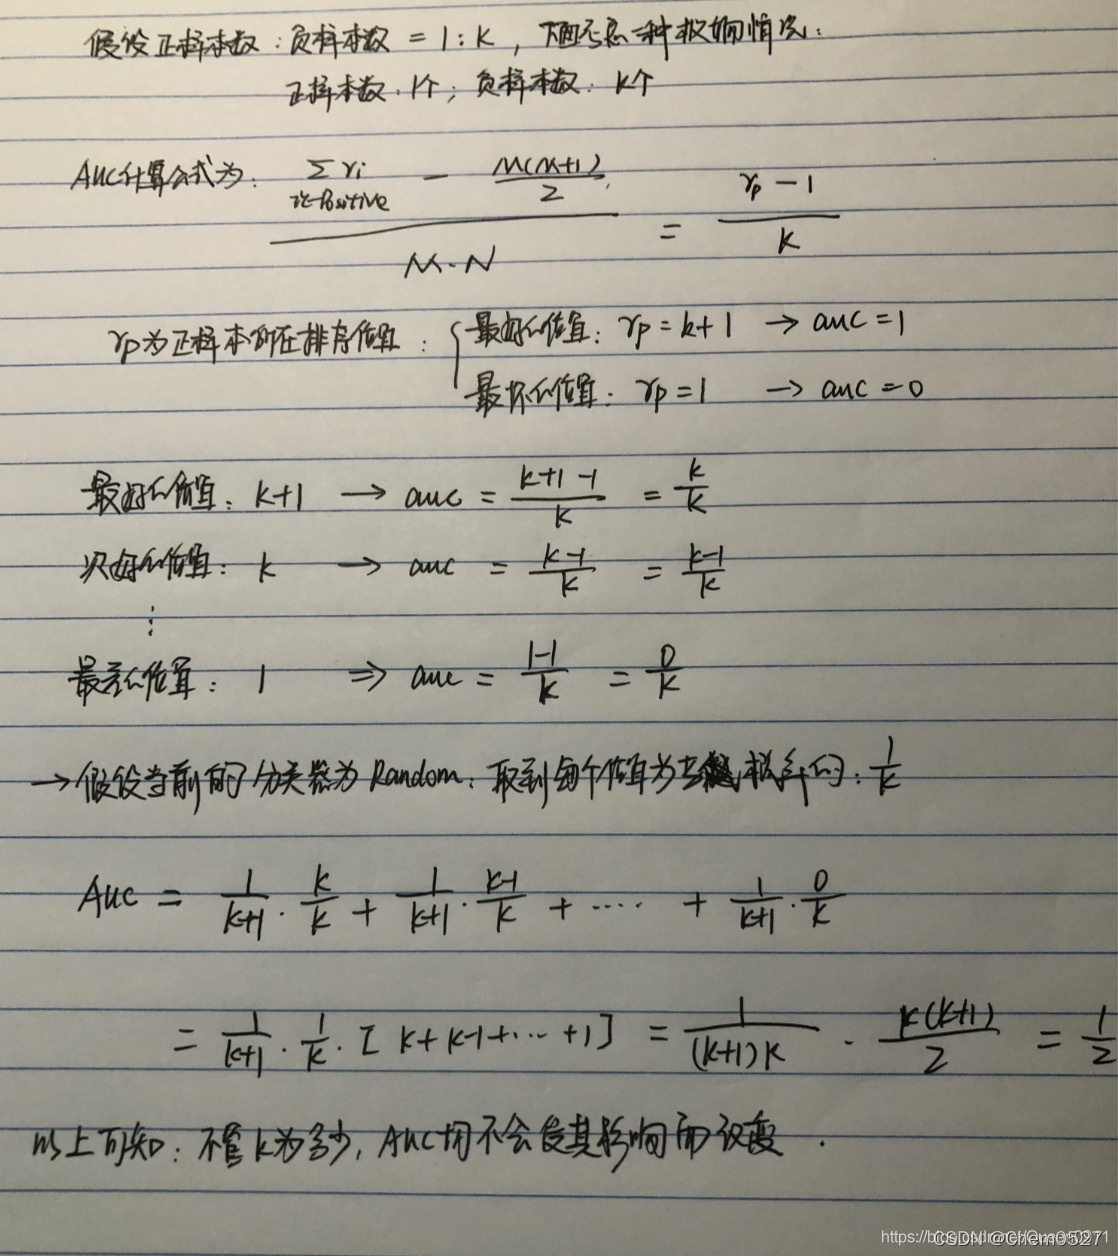 假设正样本数:负样本数 = 1:K, 下面考虑一种极端情况:
正样本数:1个; 负样本数:K个
AUC计算公式为: (∑ri i∈Positive − M(M+1)/2) / M·N = (rp − 1) / k
rp为正样本所在排序位置: { 最好的位置: rp = k+1 → auc = 1
最坏的位置: rp = 1 → auc = 0
最好的位置: k+1 → auc = (k+1−1)/k = k/k
次好的位置: k → auc = (k−1)/k = (k−1)/k
⋮
最差的位置: 1 ⇒ auc = (1−1)/k = 0/k
→ 假设当前的分类器为Random: 取到每个位置为 概率 : 1/k
AUC = 1/(k+1) · k/k + 1/(k+1) · (k−1)/k + ···· + 1/(k+1) · 0/k
= 1/(k+1) · 1/k · [k+k−1+···+1] = 1/((k+1)k) · k(k+1)/2 = 1/2
以上可知: 不管k为多少, AUC均不会受其影响而改变.
CSDN @Chem0527